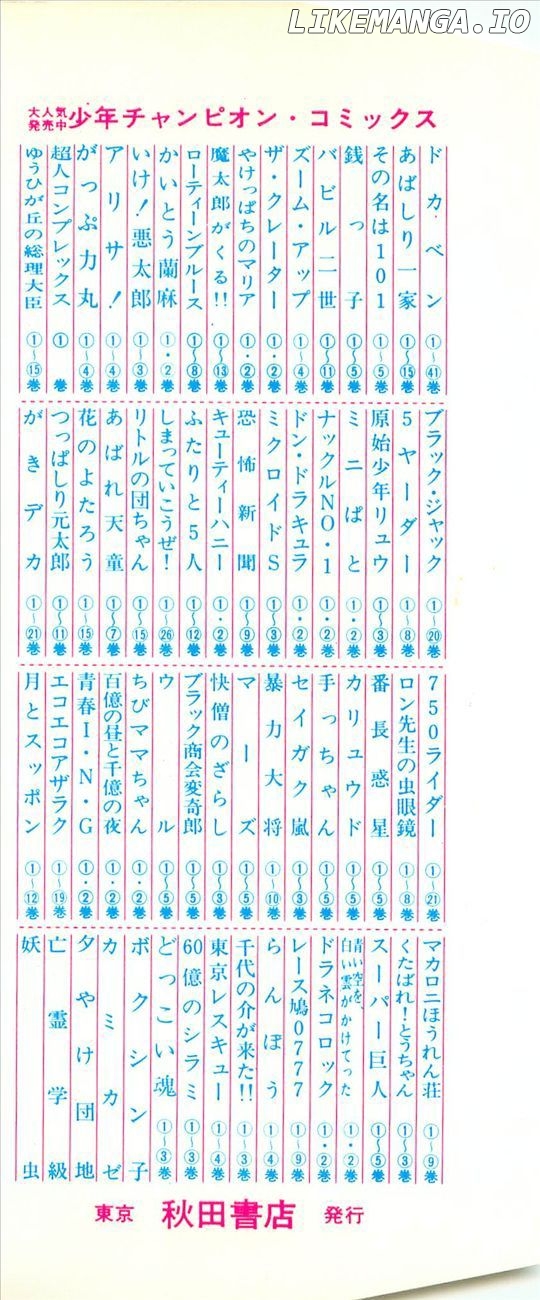 LIKEMANGA.IO
大人気発売中 少年チャンピオン・コミックス
ドカベン ①〜㊶巻
あばしり一家 ①〜⑮巻
その名は101 ①〜⑤巻
銭っ子 ①〜⑤巻
バビル二世 ①〜⑪巻
ズーム・アップ ①〜④巻
ザ・クレーター ①・②巻
やけっぱちのマリア ①・②巻
魔太郎がくる!! ①〜⑬巻
ローティーンブルース ①〜⑧巻
かいとう蘭麻 ①・②巻
いけ!悪太郎 ①〜③巻
アリサ! ①〜④巻
がっぷ力丸 ①〜④巻
超人コンプレックス ①巻
ゆうひが丘の総理大臣 ①〜⑮巻
ブラック・ジャック ①〜⑳巻
5ヤーダー ①〜⑧巻
原始少年リュウ ①〜③巻
ミニぱと ①・②巻
ナックルNO・1 ①・②巻
ドン・ドラキュラ ①〜③巻
ミクロイドS ①〜③巻
恐怖新聞 ①〜⑨巻
キューティーハニー ①・②巻
ふたりと5人 ①〜⑫巻
しまっていこうぜ! ①〜㉖巻
リトルの団ちゃん ①〜⑮巻
あばれ天童 ①〜⑦巻
花のよたろう ①〜⑮巻
つっぱしり元太郎 ①〜⑪巻
がきデカ ①〜㉑巻
750ライダー ①〜㉑巻
ロン先生の虫眼鏡 ①〜⑧巻
番長惑星 ①〜⑤巻
カリュウド ①〜⑤巻
手っちゃん ①〜⑤巻
セイガク嵐 ①〜⑤巻
暴力大将 ①〜⑩巻
マーズ ①〜⑤巻
快僧のざらし ①〜③巻
ブラック商会変奇郎 ①〜⑤巻
ウル ①〜⑤巻
ちびママちゃん ①・②巻
百億の昼と千億の夜 ①・②巻
青春I・N・G ①・②巻
エコエコアザラク ①〜⑲巻
月とスッポン ①〜⑫巻
マカロニほうれん荘 ①〜⑨巻
くたばれ!とうちゃん ①〜③巻
スーパー巨人 ①〜⑤巻
青い空を、白い雲がかけてった ①・②巻
ドラネコロック ①・②巻
レース鳩0777 ①〜⑨巻
らんぽう ①〜④巻
千代の介が来た!! ①〜③巻
東京レスキュー ①〜④巻
60億のシラミ ①〜③巻
どっこい魂 ①〜③巻
ボクシン子
カミカゼ
夕やけ団地
亡霊学級
妖虫
東京 秋田書店 発行